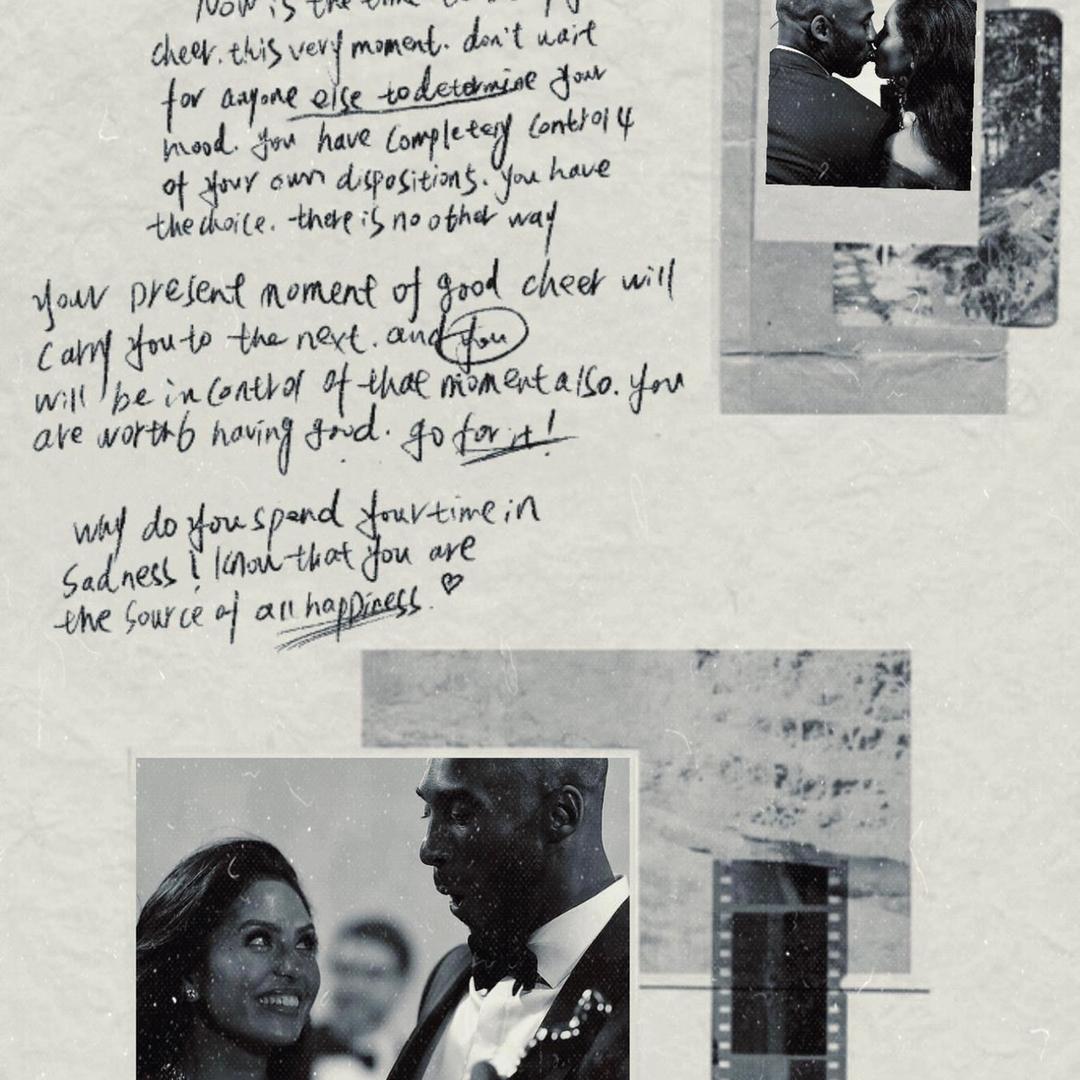 Now is the time to
cheer. this very moment. don't wait
for anyone else to determine your
mood. you have completely control 4
of your own dispositions. you have
the choice. there is no other way
your present moment of good cheer will
carry you to the next. and you
will be in control of that moment also. you
are worth6 having good. go for it!
why do you spend your time in
sadness! know that you are
the source of all happiness. ♡